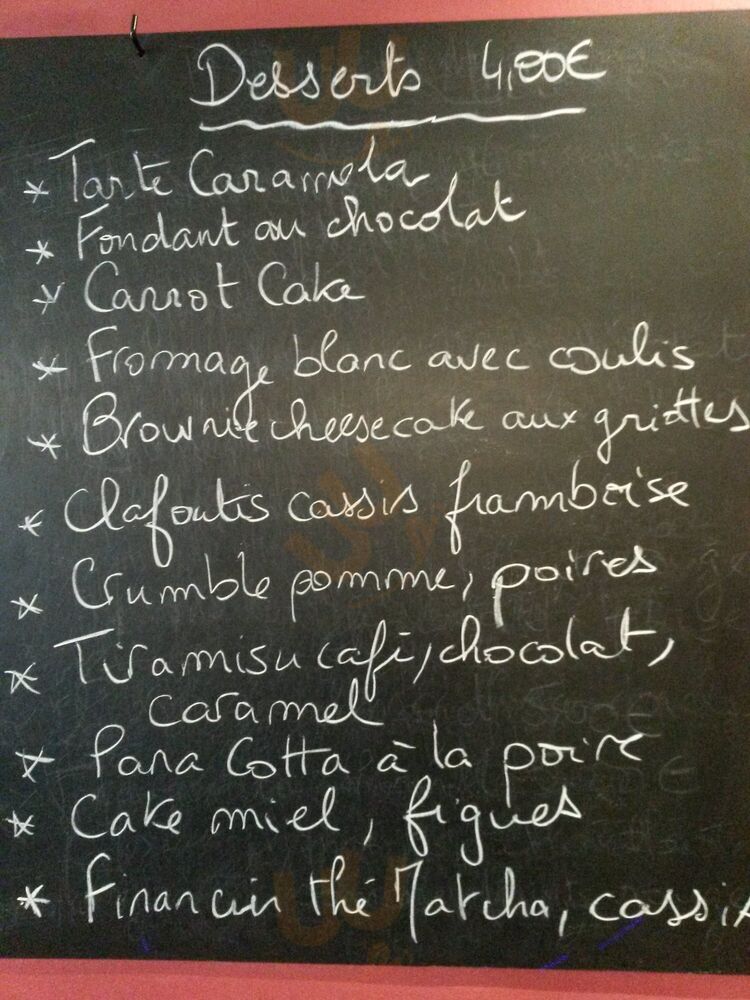 Desserts 4,00€
* Tarte Caramela
* Fondant au chocolat
* Carrot Cake
* Fromage blanc avec coulis
* Brownie cheesecake aux griottes
* Clafoutis cassis framboise
* Crumble pomme, poires
* Tiramisu café, chocolat,
caramel
* Pana Cotta à la poire
* Cake miel, figues
* Financier thé Matcha, cassis